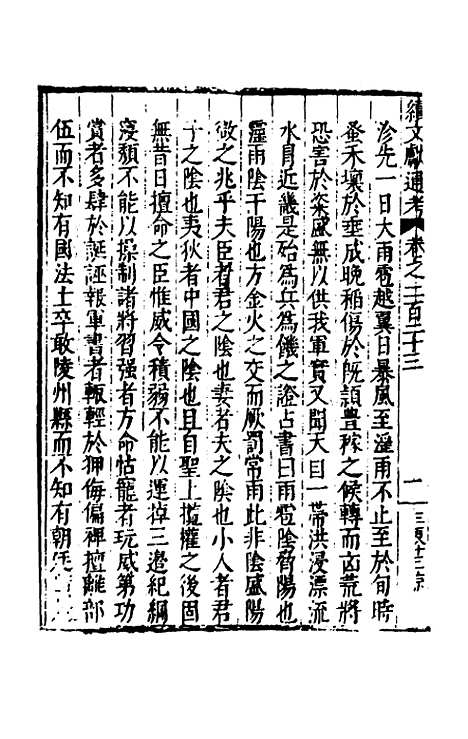 續文獻通考 卷之二百二十三
沴先一日大雨雹越翼日暴風至滛雨不止至於旬時
蚤禾壞於垂成晚稲傷於旣頴豊稼之候轉而凶荒將
恐害於粢盛無以供我軍實又聞天目一帶洪浸漂流
水冐近畿是殆為兵為饑之證占書曰雨雹陰脅陽也
滛雨陰干陽也方金火之交而厥罰常雨此非陰盛陽
微之兆乎夫臣者君之陰也妻者夫之陰也小人者君
子之陰也夷狄者中國之陰也且自聖上攬權之後固
無昔日擅命之臣惟威令積弱不能以運掉三邉紀綱
寖頽不能以操制諸將習强者方命怙寵者玩威第功
賞者多肆於誕誣報軍書者輙輕於狎侮偏裨擅離部
伍而不知有國法士卒敢陵州縣而不知有朝廷